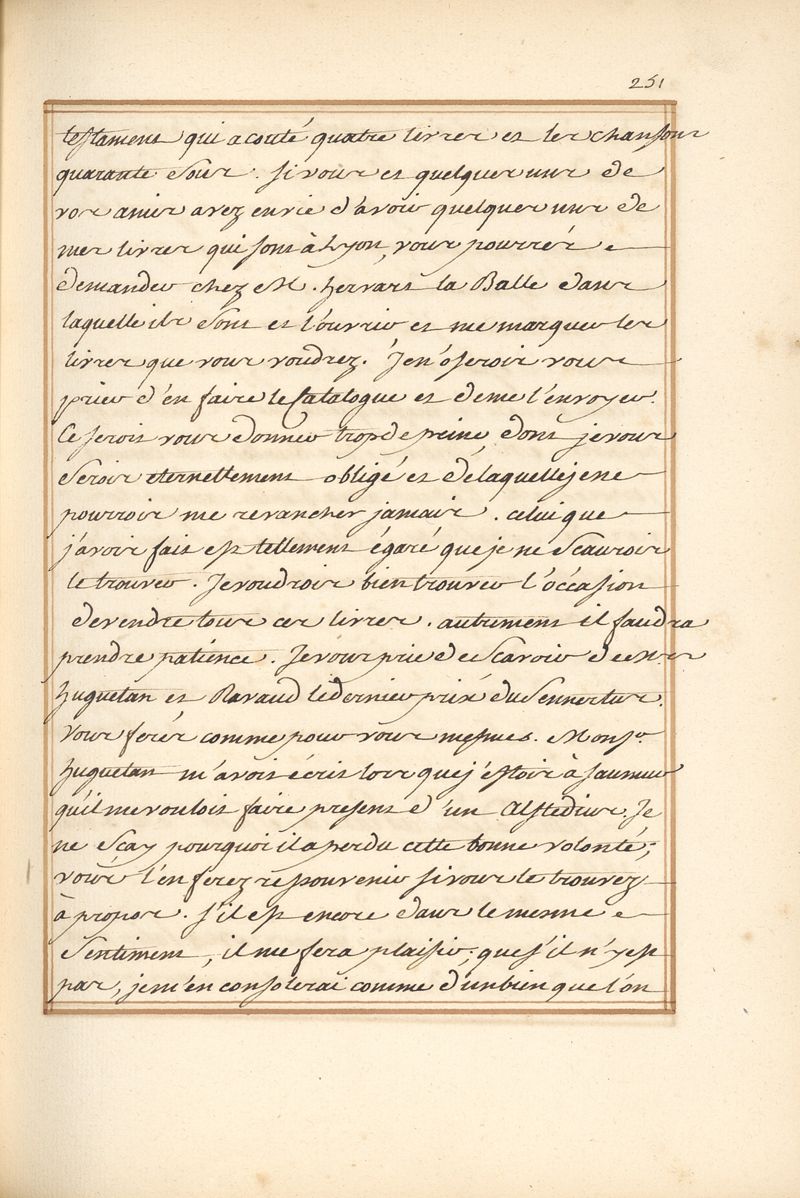 251
testament qui a couté quatre livres et les chansons
quarante Sous. Si vous et quelques uns de
vos amis avez envie d'avoir quelques uns de
mes livres qui sont à Lyon, vous pourrés
demander chez M. hervart la Balle dans
laquelle ils Sont et l'ouvrir et me marquer les
livres que vous voudrez. Je n'oserois vous
prier d'en faire le Catalogue et de me l'envoyer.
Ce serois vous donner trop de peine dont je vous
Serois eternellement obligé et de laquelle je ne
pourrois me revancher jamais. celui que
j'avois fait est tellement égaré que je ne Scaurois
le trouver. Je voudrois bien trouver l'occasion
de vendre tous ces livres. autrement il faudra
prendre patience. Je vous prie de Scavoir de Mrs
huguetan et Ravaud le dernier prix du Sennertus.
Vous ferés comme pour vous mesmes. Monsr.
huguetan m'avoit écrit lors que j'estois à Saumur
qu'il me vouloit faire present d'un Alstedius. Je
ne Scay pourquoi il a perdu cette bonne volonté;
vous l'en ferez ressouvenir si vous le trouvez
à propos. s'il est encore dans le mesme
Sentiment, il me fera plaisir; que s'il n'y est
pas, je m'en consolerai comme d'un bien que l'on